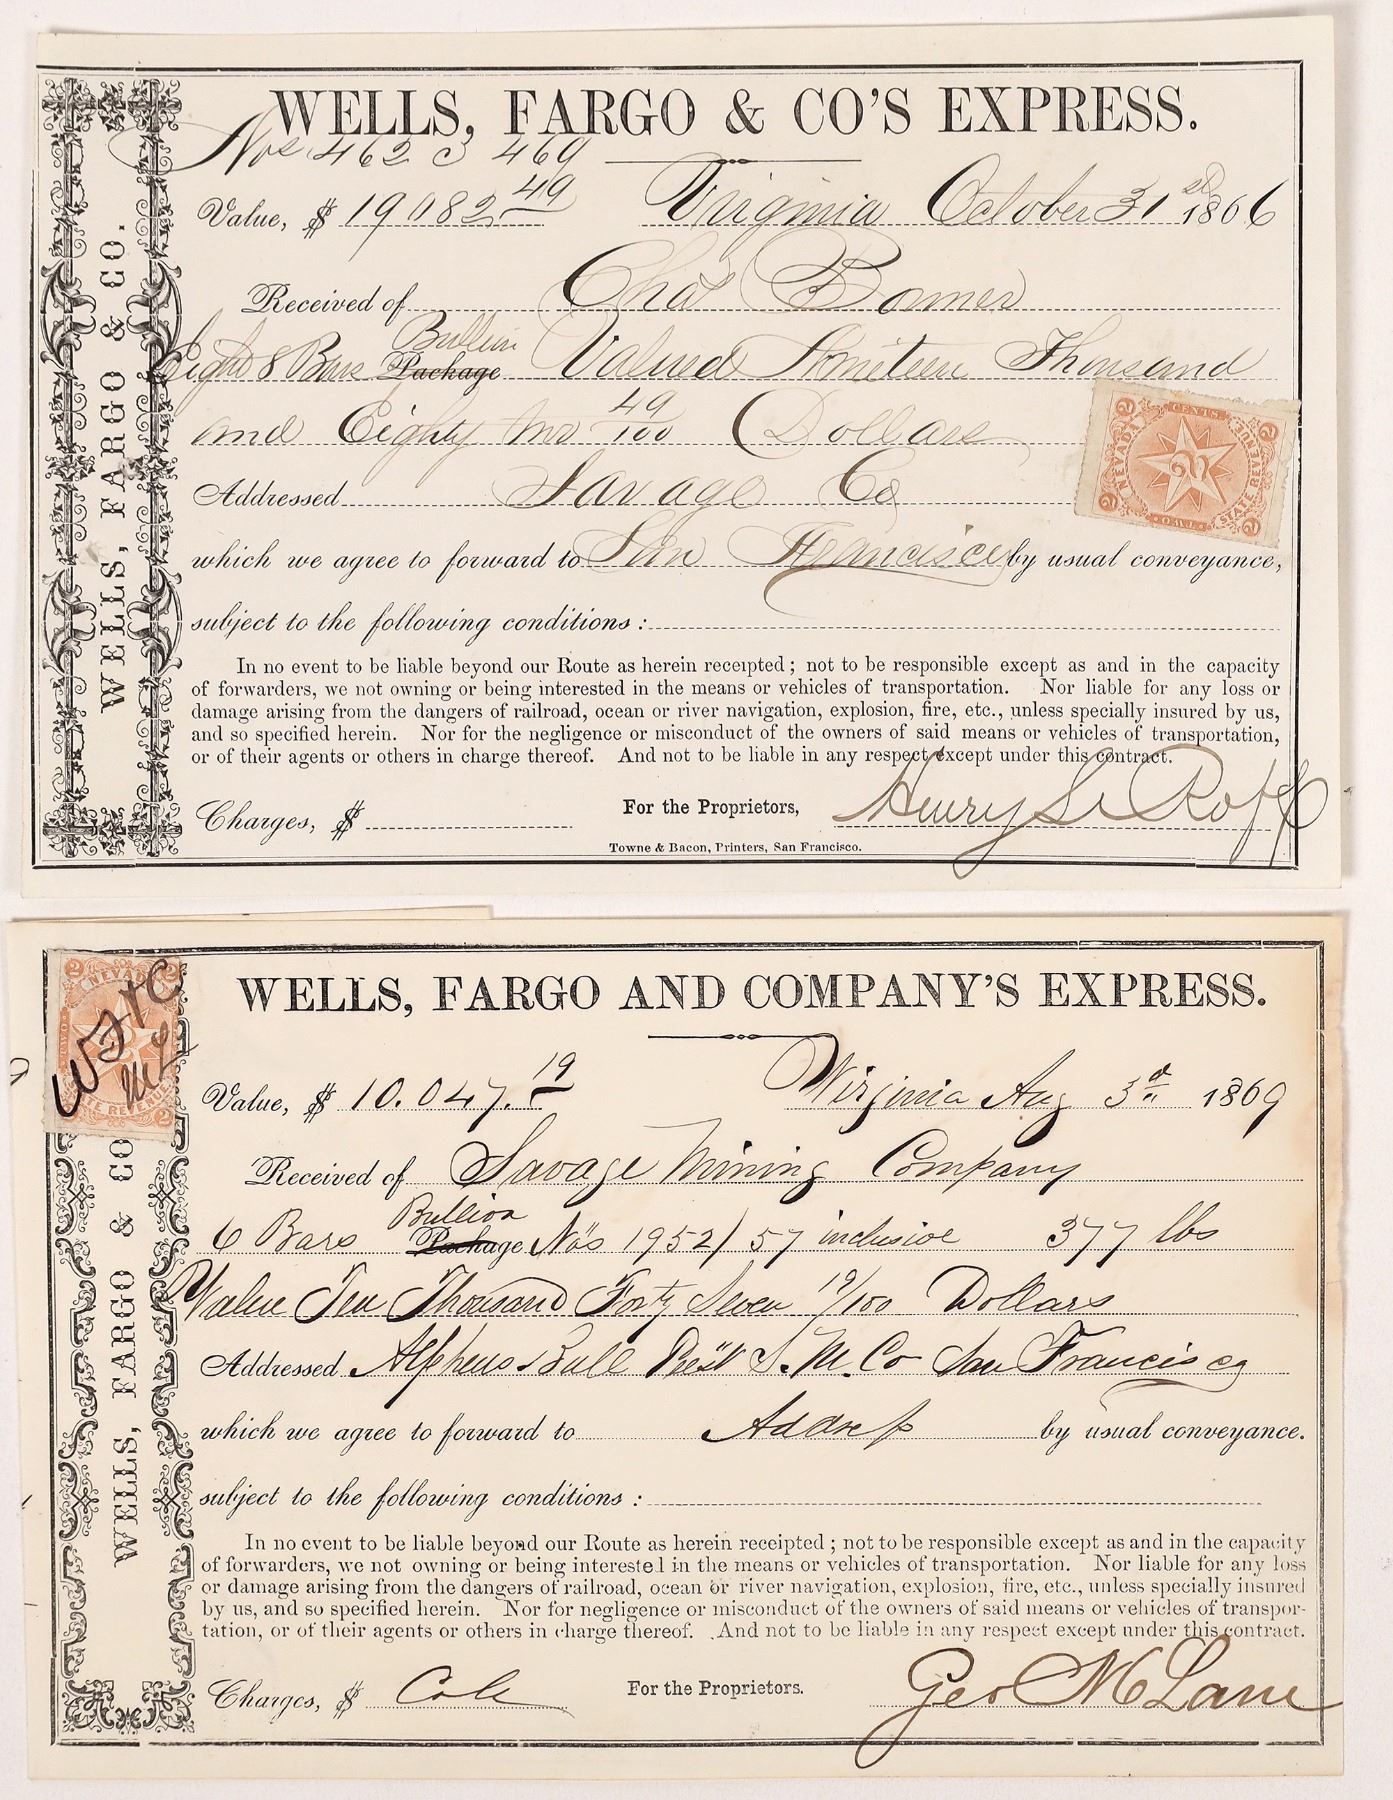 WELLS, FARGO & CO'S EXPRESS.
Nos 462 @ 469
Value, $ 19082 49 Virginia October 31st 1866
Received of Chas Bonner
Bullion
Eight 8 Bars Package Valued Nineteen Thousand
and Eighty two 49/100 Dollars
Addressed Savage Co
which we agree to forward to San Francisco by usual conveyance,
subject to the following conditions :
In no event to be liable beyond our Route as herein receipted ; not to be responsible except as and in the capacity
of forwarders, we not owning or being interested in the means or vehicles of transportation. Nor liable for any loss or
damage arising from the dangers of railroad, ocean or river navigation, explosion, fire, etc., unless specially insured by us,
and so specified herein. Nor for the negligence or misconduct of the owners of said means or vehicles of transportation,
or of their agents or others in charge thereof. And not to be liable in any respect except under this contract.
Charges, $ For the Proprietors, Henry Roff
Towne & Bacon, Printers, San Francisco.
WELLS, FARGO & CO.
2 CENTS. 2
NEVADA STATE REVENUE
2
2 TWO 2
WELLS, FARGO AND COMPANY'S EXPRESS.
Value, $ 10.047.19 Virginia Aug 3d 1869
Received of Savage Mining Company
Bullion
6 Bars Package Nos 1952/57 inclusive 377 lbs
Value Ten Thousand Forty Seven 19/100 Dollars
Addressed Alpheus Bull Prest S. M. Co San Francisco
which we agree to forward to Address by usual conveyance.
subject to the following conditions :
In no event to be liable beyond our Route as herein receipted ; not to be responsible except as and in the capacity
of forwarders, we not owning or being interested in the means or vehicles of transportation. Nor liable for any loss
or damage arising from the dangers of railroad, ocean or river navigation, explosion, fire, etc., unless specially insured
by us, and so specified herein. Nor for negligence or misconduct of the owners of said means or vehicles of transpor-
tation, or of their agents or others in charge thereof. And not to be liable in any respect except under this contract.
Charges, $ Cole For the Proprietors. Geo M Lane
WELLS, FARGO & CO
2 NEVADA 2
TWO
STATE REVENUE 2
W F & C